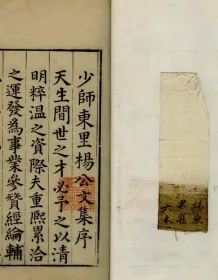 少師東里楊公文集序
天生間世之才必予之以清
明粹温之資際夫重熙累洽
之運發為事業參贊經綸輔